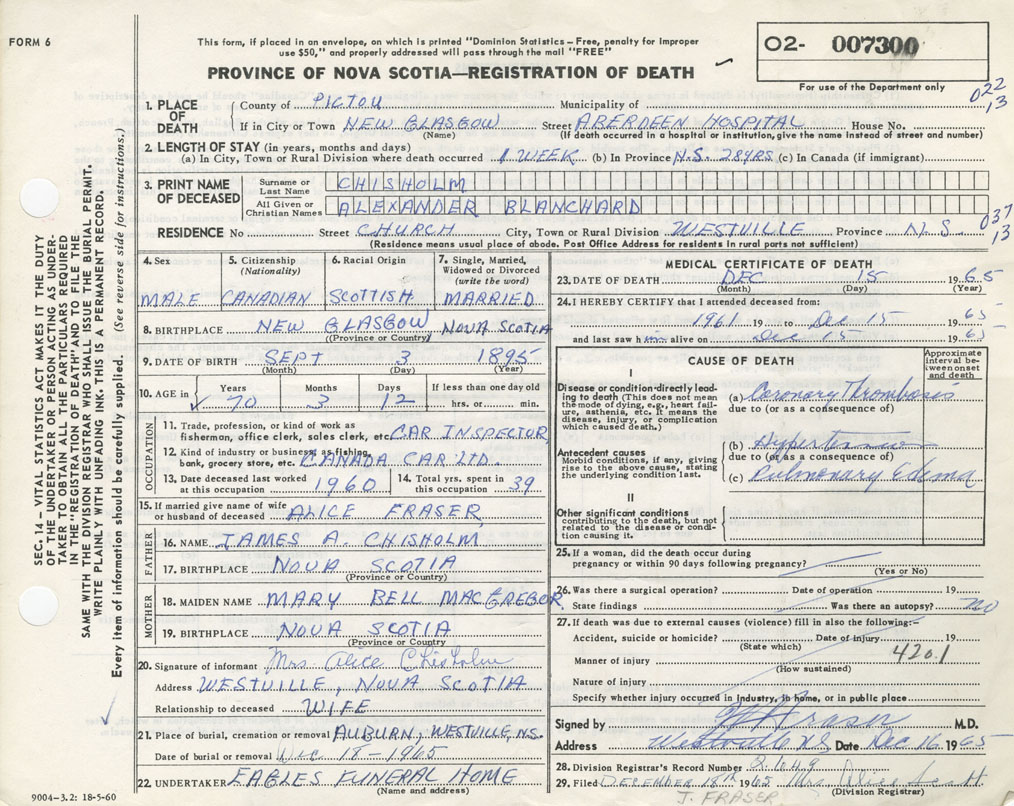 FORM 6
This form, if placed in an envelope, on which is printed "Dominion Statistics – Free, penalty for improper
use $50," and properly addressed will pass through the mail "FREE"
PROVINCE OF NOVA SCOTIA—REGISTRATION OF DEATH
02- 007300
For use of the Department only
022
13
1. PLACE OF DEATH County of PICTOU Municipality of
If in City or Town NEW GLASGOW Street ABERDEEN HOSPITAL House No.
(Name) (If death occurred in a hospital or institution, give the name instead of street and number)
2. LENGTH OF STAY (in years, months and days)
(a) In City, Town or Rural Division where death occurred 1 WEEK (b) In Province N.S. 28YRS (c) In Canada (if immigrant)
3. PRINT NAME OF DECEASED
Surname or Last Name CHISHOLM
All Given or Christian Names ALEXANDER BLANCHARD
RESIDENCE No Street CHURCH City, Town or Rural Division WESTVILLE Province N.S.
037
13
(Residence means usual place of abode. Post Office Address for residents in rural parts not sufficient)
4. Sex 5. Citizenship (Nationality) 6. Racial Origin 7. Single, Married, Widowed or Divorced (write the word)
MALE CANADIAN SCOTTISH MARRIED
8. BIRTHPLACE NEW GLASGOW NOVA SCOTIA
(Province or Country)
9. DATE OF BIRTH SEPT 3 1895
(Month) (Day) (Year)
10. AGE in Years Months Days If less than one day old
70 3 12 hrs. or min.
OCCUPATION
11. Trade, profession, or kind of work as
fisherman, office clerk, sales clerk, etc. CAR INSPECTOR
12. Kind of industry or business as fishing,
bank, grocery store, etc. CANADA CAR LTD.
13. Date deceased last worked at this occupation 1960 14. Total yrs. spent in this occupation 39
15. If married give name of wife or husband of deceased ALICE FRASER
FATHER
16. NAME JAMES A. CHISHOLM
17. BIRTHPLACE NOVA SCOTIA
(Province or Country)
MOTHER
18. MAIDEN NAME MARY BELL MACGREGOR
19. BIRTHPLACE NOVA SCOTIA
(Province or Country)
20. Signature of informant Mrs Alice Chisholm
Address WESTVILLE, NOVA SCOTIA
Relationship to deceased WIFE
21. Place of burial, cremation or removal AUBURN, WESTVILLE, N.S.
Date of burial or removal Dec 18-1965
22. UNDERTAKER EAGLES FUNERAL HOME
(Name and address)
MEDICAL CERTIFICATE OF DEATH
23. DATE OF DEATH DEC 15 1965
(Month) (Day) (Year)
24. I HEREBY CERTIFY that I attended deceased from:
1961 19 to Dec 15 1965
and last saw him alive on Dec 15 1965
CAUSE OF DEATH
Approximate interval between onset and death
I
Disease or condition directly leading to death (This does not mean the mode of dying, e.g., heart failure, asthenia, etc. It means the disease, injury, or complication which caused death.)
(a) Coronary Thrombosis
due to (or as a consequence of)
Antecedent causes
Morbid conditions, if any, giving rise to the above cause, stating the underlying condition last.
(b) Hypertension
due to (or as a consequence of)
(c) Pulmonary Edema
II
Other significant conditions
contributing to the death, but not related to the disease or condition causing it.
25. If a woman, did the death occur during
pregnancy or within 90 days following pregnancy?
(Yes or No)
26. Was there a surgical operation? Date of operation 19
State findings Was there an autopsy? no
27. If death was due to external causes (violence) fill in also the following:-
Accident, suicide or homicide? Date of injury 19
(State which)
420.1
Manner of injury
(How sustained)
Nature of injury
Specify whether injury occurred in industry, in home, or in public place
Signed by Fraser M.D.
Address Westville N.S. Date Dec 16 1965
28. Division Registrar's Record Number
29. Filed DECEMBER 18th 1965 Mrs. Alice Scott
(Division Registrar)
J. FRASER
9004-3.2: 18-5-60
SEC. 14 – VITAL STATISTICS ACT MAKES IT THE DUTY
OF THE UNDERTAKER OR PERSON ACTING AS UNDER-
TAKER TO OBTAIN ALL THE PARTICULARS REQUIRED
IN THE "REGISTRATION OF DEATH" AND TO FILE THE
SAME WITH THE DIVISION REGISTRAR WHO SHALL ISSUE THE BURIAL PERMIT.
WRITE PLAINLY WITH UNFADING INK. THIS IS A PERMANENT RECORD.
Every item of information should be carefully supplied. (See reverse side for instructions.)